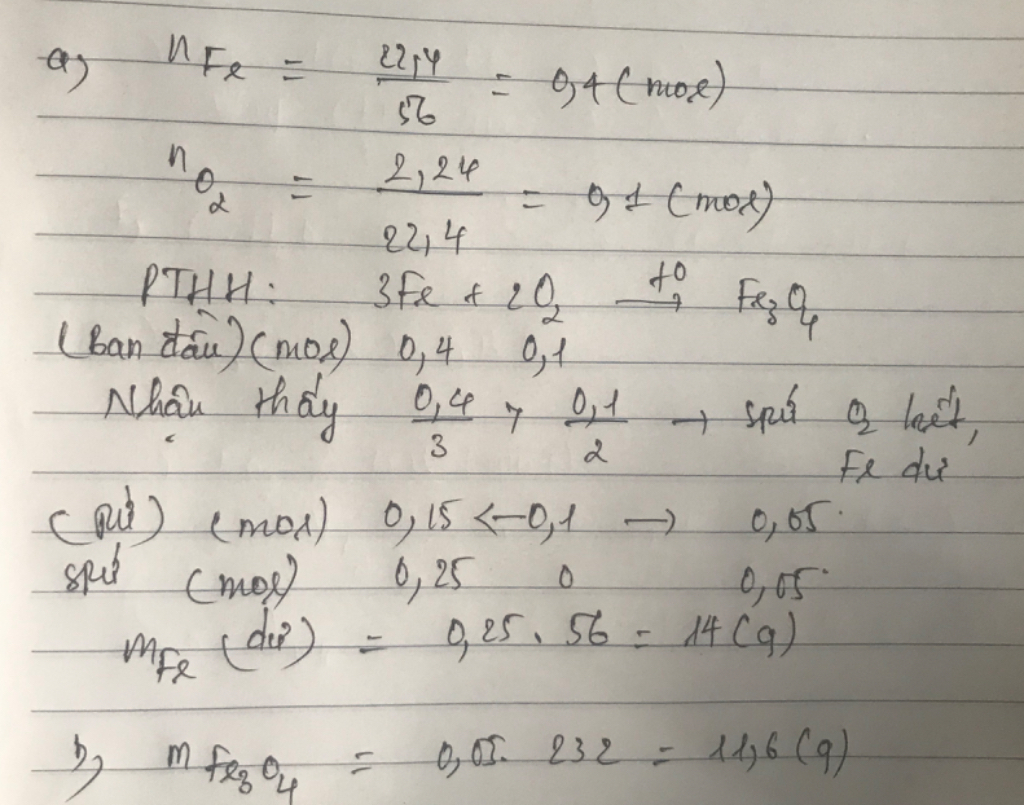 a) nFe = 22,4/56 = 0,4 (mol)
nO2 = 2,24/22,4 = 0,1 (mol)
PTHH: 3Fe + 2O2 →(t0) Fe3O4
(Ban đầu) (mol) 0,4 0,1
Nhận thấy 0,4/3 > 0,1/2 → spứ O2 hết,
Fe dư
(pứ) (mol) 0,15 ←0,1 → 0,05
spứ (mol) 0,25 0 0,05
mFe (dư) = 0,25 . 56 = 14 (g)
b) mFe3O4 = 0,05. 232 = 11,6 (g)